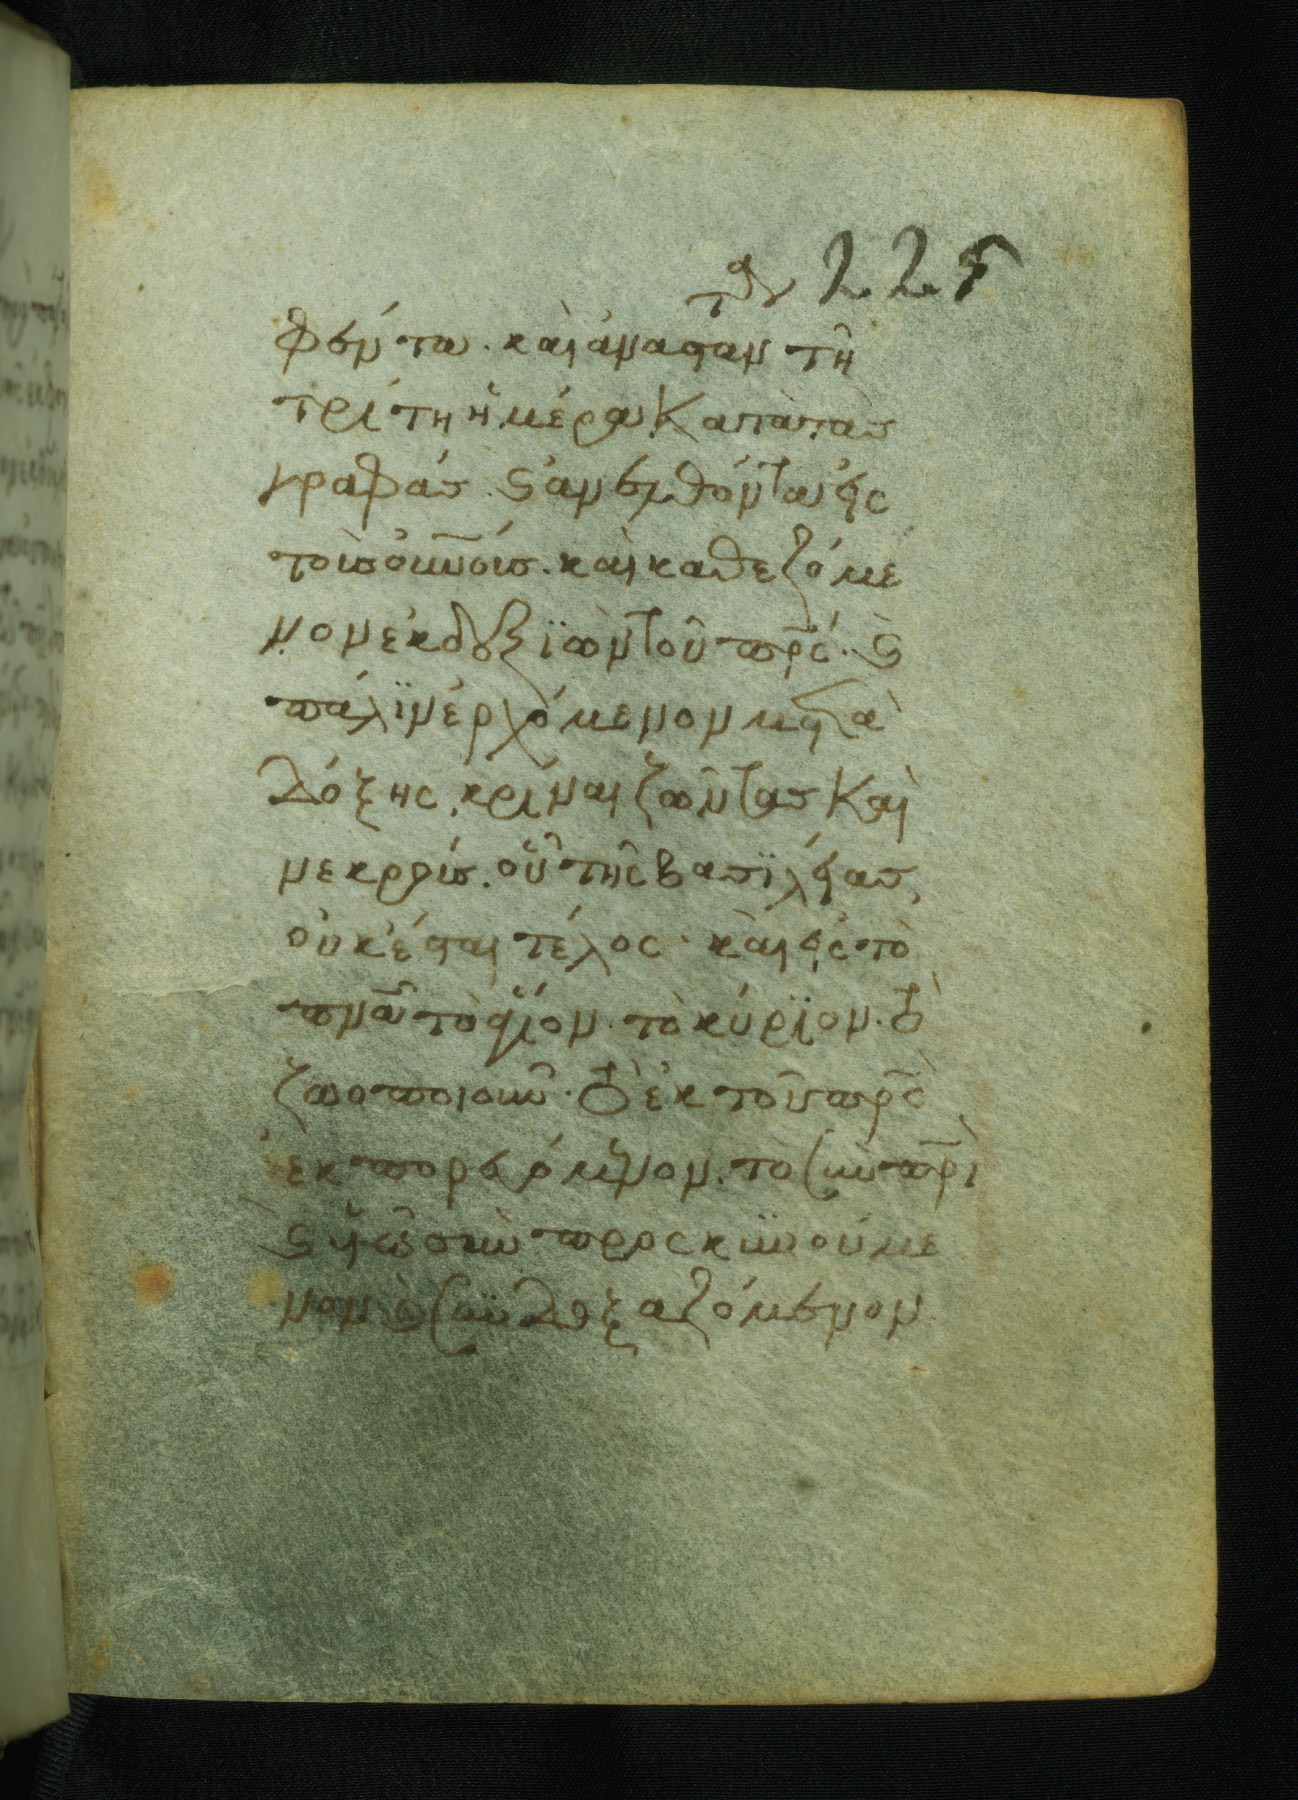 225
φέντα· καὶ ἀναστάντα τῆ
τρίτη ἡμέρα κατὰ τὰς
γραφάς. καὶ ἀνελθόντα εἰς
τοὺς οὐνοὺς· καὶ καθεζόμε
νον ἐκ δεξϊῶν τοῦ πρς· καὶ
πάλϊν ἐρχόμενον μετὰ
δόξης, κρίναι ζῶντας καὶ
νεκρούς. οὗ τῆς βασϊλείας,
οὐκ ἔσται τέλος· καὶ εἰς τὸ
πνα τὸ ἅγϊον. τὸ κύρϊον. τὸ
ζωοποιοῦν· τὸ ἐκ τοῦ πρς
ἐκπορευόμενον. τὸ σὺν πρὶ
καὶ υἱῶ συν προσκυνούμε
νον καὶ συνδοξαζόμενον